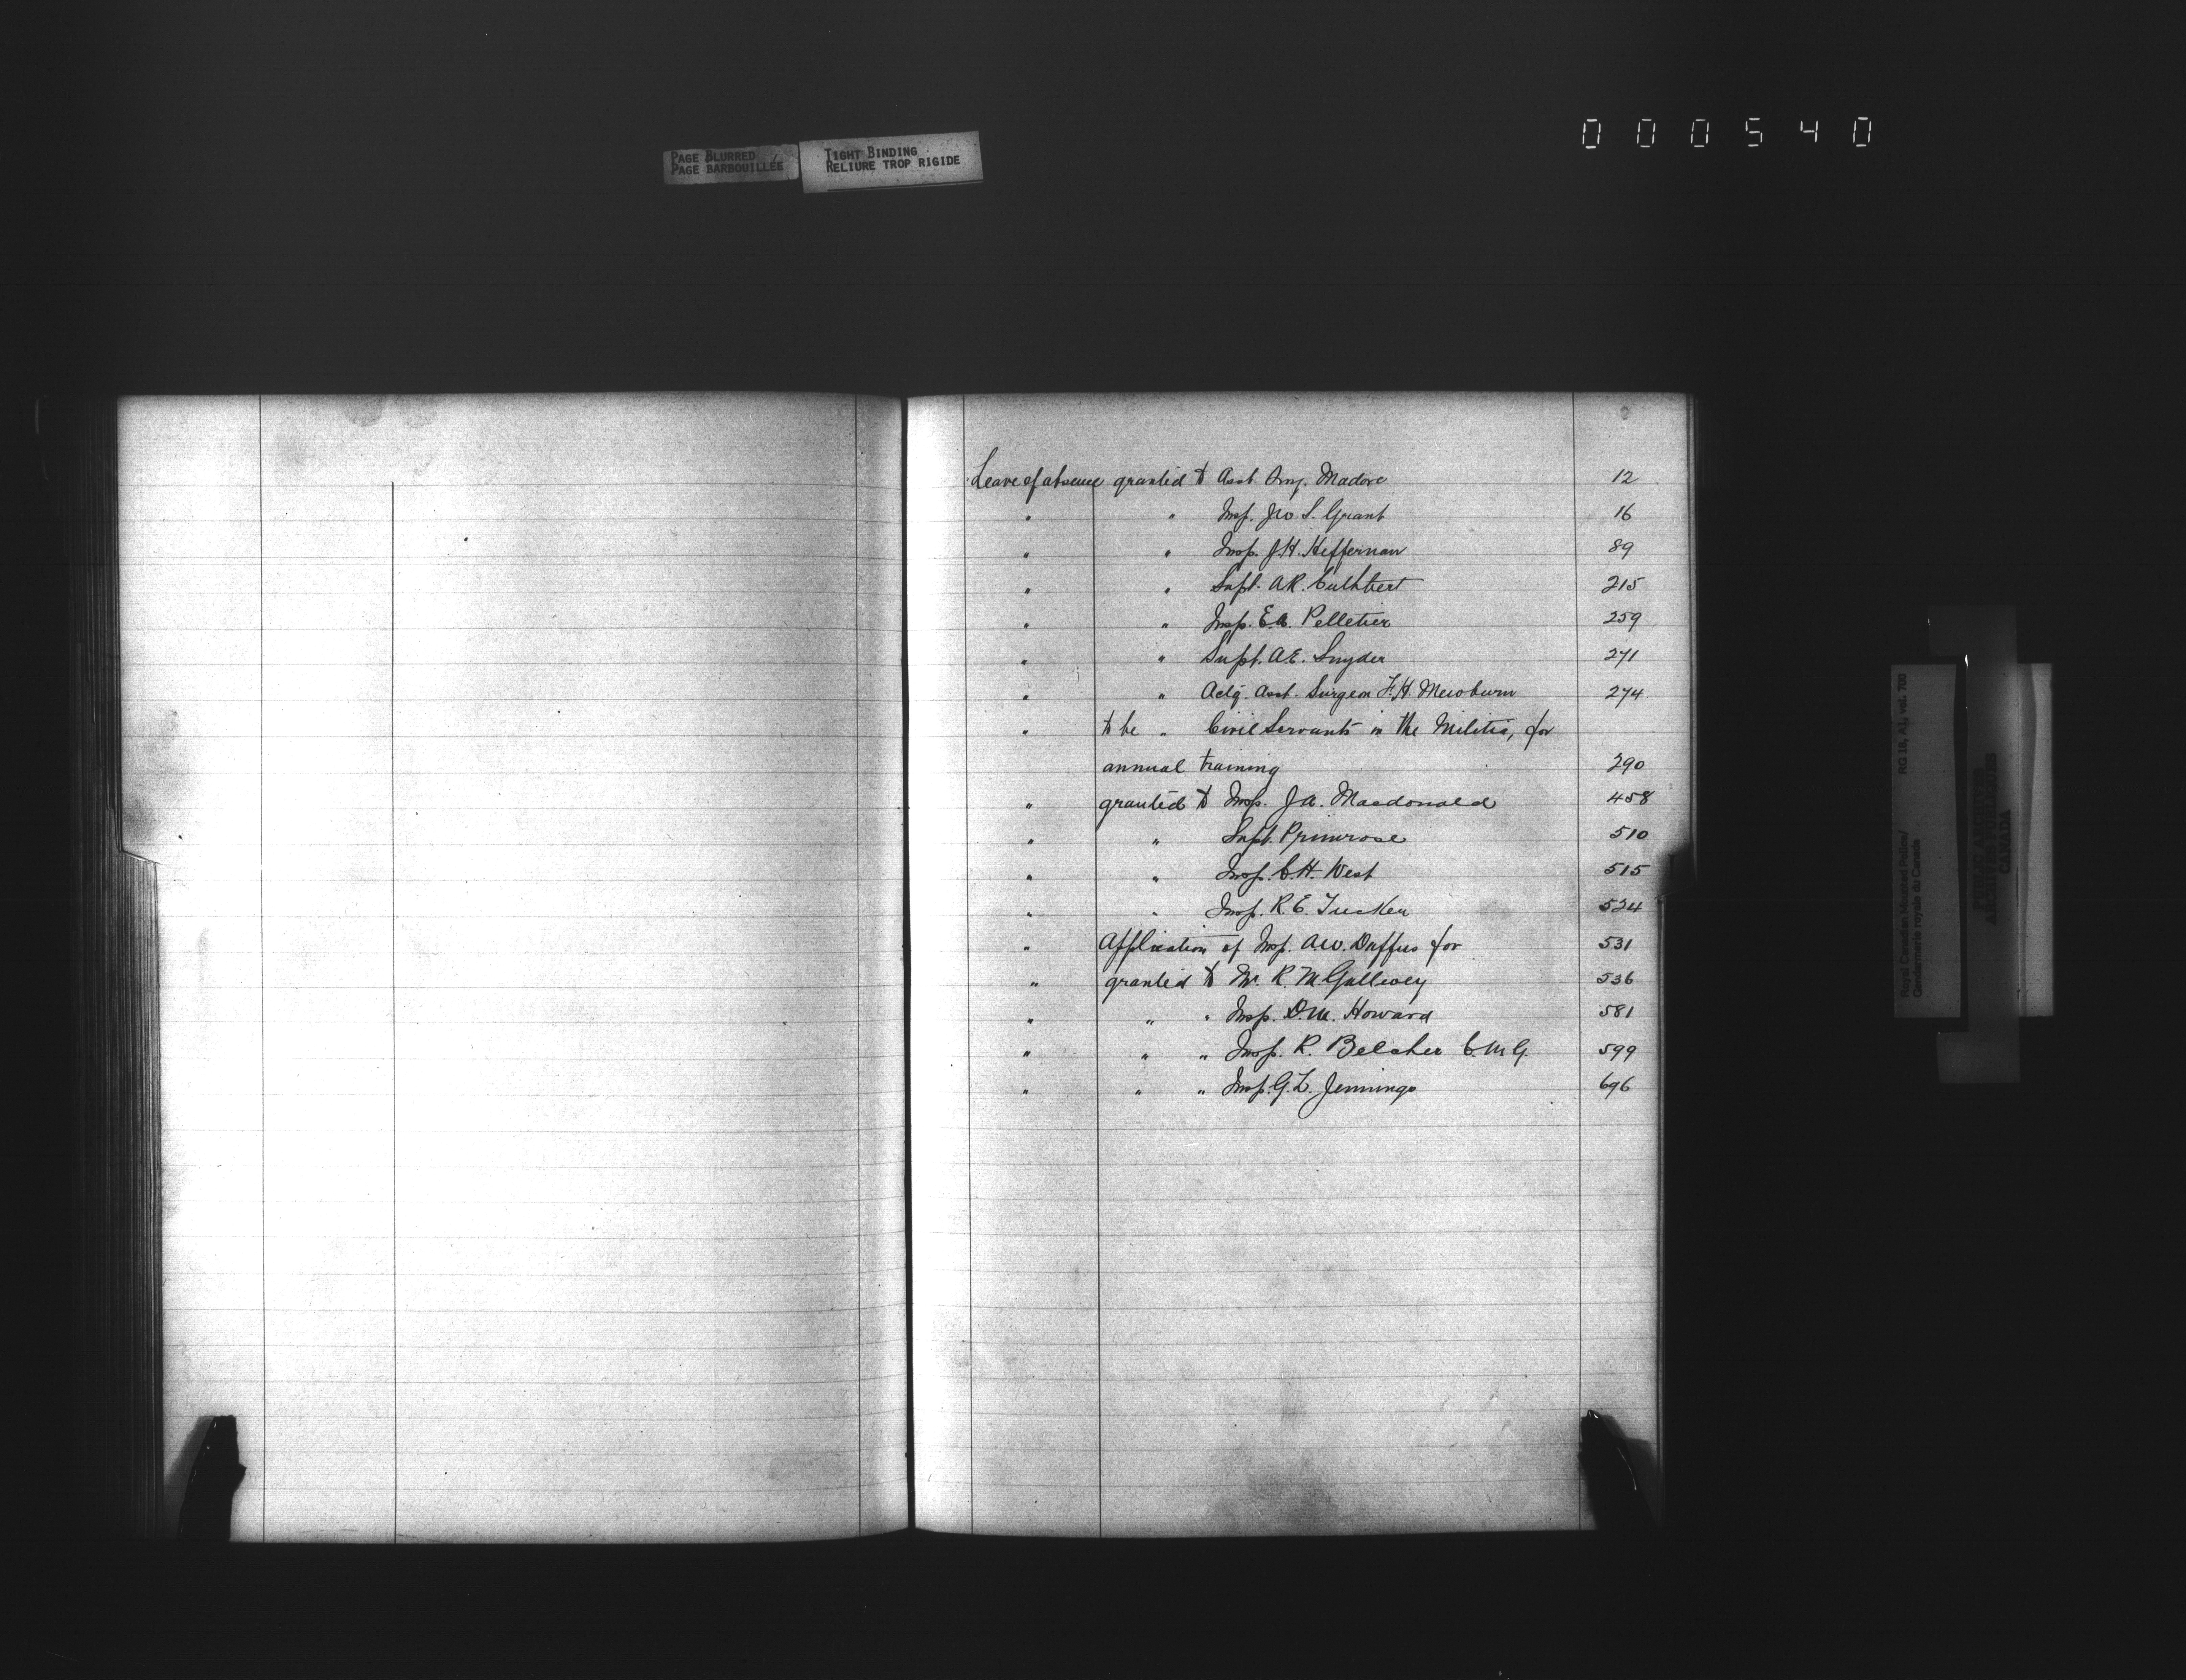 000540
PAGE BLURRED
PAGE BARBOUILLÉE
TIGHT BINDING
RELIURE TROP RIGIDE
Leave of absence granted to Asst. Surg. Madore 12
" " Insp. Jno. S. Grant 16
" " Insp. J.H. Heffernan 89
" " Supt. A.R. Cuthbert 215
" " Insp. E.A. Pelletier 259
" " Supt. A.E. Snyder 271
" " Actg. Asst. Surgeon F.H. Mewburn 274
" to be " Civil Servants in the Militia, for
annual training 290
" granted to Insp. J.A. Macdonald 458
" " Supt. Primrose 510
" " Insp. C.H. West 515
" " Insp. R.E. Tucker 524
" Application of Insp. A.W. Duffus for 531
" granted to Mr. R. M. Gallwey 536
" " " Insp. D.M. Howard 581
" " " Insp. R. Belcher C.M.G. 599
" " " Insp. G.L. Jennings 696
Royal Canadian Mounted Police/
Gendarmerie royale du Canada
RG 18, A1, vol. 700
PUBLIC ARCHIVES
ARCHIVES PUBLIQUES
CANADA